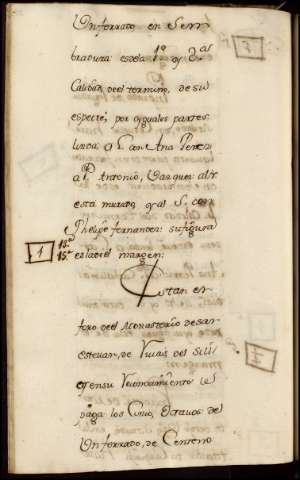 Un ferrado en Sem
bradura es de la 1ª y 2ª
Calidad del termino, de su
especie, por yguales partes
linda a L. con Ana Perez
a P. Antonio, Vazquez al N
esta murado y al S. con
Phelipe fernandez: su figura
1 18º 15º es la del margen:
Estan en
foro del Monasterio de San
estevan, de Rivas del Sill
y en su Reconocimiento le
paga los Cinco, Octavos del
Un ferrado, de Centeno